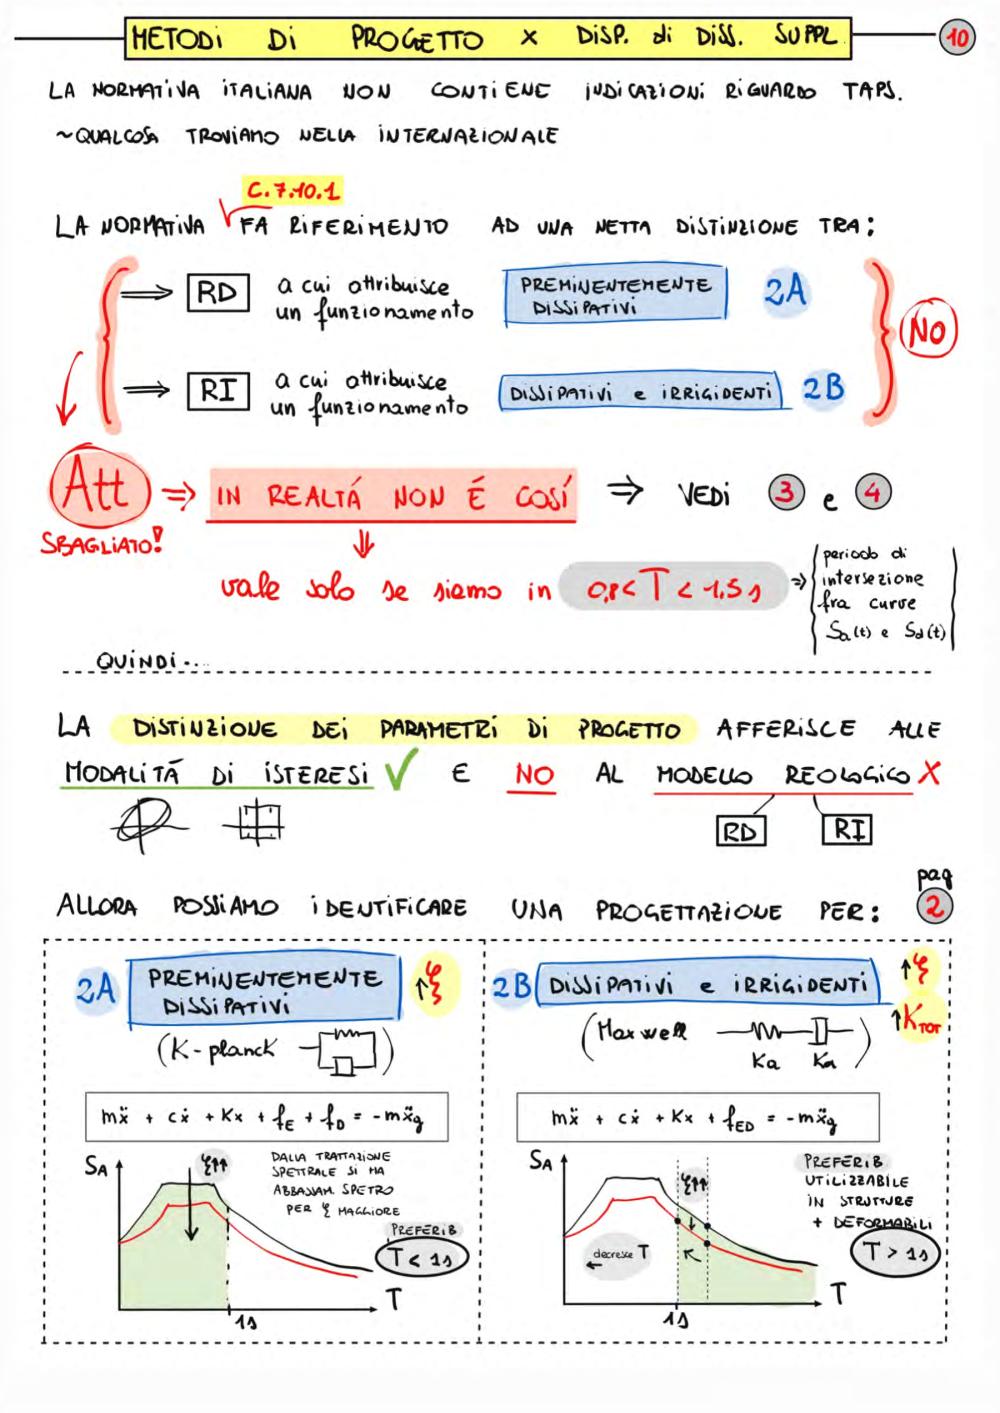 METODI DI PROGETTO x DISP. di DISS. SUPPL.
10
LA NORMATIVA ITALIANA NON CONTIENE INDICAZIONI RIGUARDO TAPS.
~QUALCOSA TROVIAMO NELLA INTERNAZIONALE
C.7.10.1
LA NORMATIVA FA RIFERIMENTO AD UNA NETTA DISTINZIONE TRA:
⇒ RD a cui attribuisce un funzionamento PREMINENTEMENTE DISSIPATIVI 2A
NO
⇒ RI a cui attribuisce un funzionamento DISSIPATIVI e IRRIGIDENTI 2B
Att ⇒ IN REALTÁ NON É COSÍ ⇒ VEDI 3 e 4
SBAGLIATO!
vale solo se siamo in 0,8 < T < 1,5 s ⇒
periodo di
intersezione
fra curve
Sa(t) e Sd(t)
QUINDI...
LA DISTINZIONE DEI PARAMETRI DI PROGETTO AFFERISCE ALLE
MODALITÁ DI ISTERESI ✓ E NO AL MODELLO REOLOGICO X
RD RI
pag
ALLORA POSSIAMO IDENTIFICARE UNA PROGETTAZIONE PER: 2
2A PREMINENTEMENTE DISSIPATIVI ↑ξ
(K-planck )
mẍ + cẋ + Kx + fE + fD = -mẍg
SA
ξ↑↑
DALLA TRATTAZIONE
SPETTRALE SI HA
ABBASSAM. SPETRO
PER ξ MAGGIORE
PREFERIB
T < 1s
T
1s
2B DISSIPATIVI e IRRIGIDENTI ↑ξ
↑KTOT
(Maxwell )
Ka
mẍ + cẋ + Kx + fED = -mẍg
SA
ξ↑↑
decresce T
PREFERIB
UTILIZZABILE
IN STRUTTURE
+ DEFORMABILI
T > 1s
T
1s